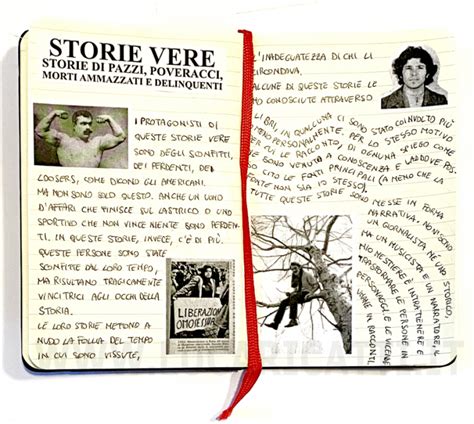 STORIE VERE
STORIE DI PAZZI, POVERACCI,
MORTI AMMAZZATI E DELINQUENTI
I PROTAGONISTI DI
QUESTE STORIE VERE
SONO DEGLI SCONFITTI,
DEI PERDENTI, DEI
LOOSERS, COME DICONO GLI AMERICANI.
MA NON SONO SOLO QUESTO. ANCHE UN UOMO
D'AFFARI CHE FINISCE SUL LASTRICO O UNO
SPORTIVO CHE NON VINCE NIENTE SONO PERDEN-
TI. IN QUESTE STORIE, INVECE, C'È DI PIÙ.
QUESTE PERSONE SONO STATE
SCONFITTE DAL LORO TEMPO,
MA RISULTANO TRAGICAMENTE
VINCITRICI AGLI OCCHI DELLA
STORIA.
LE LORO STORIE METTONO A
NUDO LA FOLLIA DEL TEMPO
IN CUI SONO VISSUTE,
LIBERAZIONE
OMOSESSUALE
L'INADEGUATEZZA DI CHI LI
CIRCONDAVA.
ALCUNE DI QUESTE STORIE LE
HO CONOSCIUTE ATTRAVERSO
LIBRI, IN QUALCUNA CI SONO STATO COINVOLTO PIÙ
O MENO PERSONALMENTE. PER LO STESSO MOTIVO
PER CUI LE RACCONTO, DI OGNUNA SPIEGO COME
NE SONO VENUTO A CONOSCENZA E LADDOVE POS-
SO CITO LE FONTI PRINCIPALI (A MENO CHE LA
FONTE NON SIA IO STESSO).
TUTTE QUESTE STORIE SONO MESSE IN FORMA
NARRATIVA. NON SONO
UN GIORNALISTA NÉ UNO STORICO,
MA UN MUSICISTA E UN NARRATORE, IL
MIO MESTIERE È INTRATTENERE E
TRASFORMARE LE PERSONE IN
PERSONAGGI E LE VICENDE
UMANE IN RACCONTI.